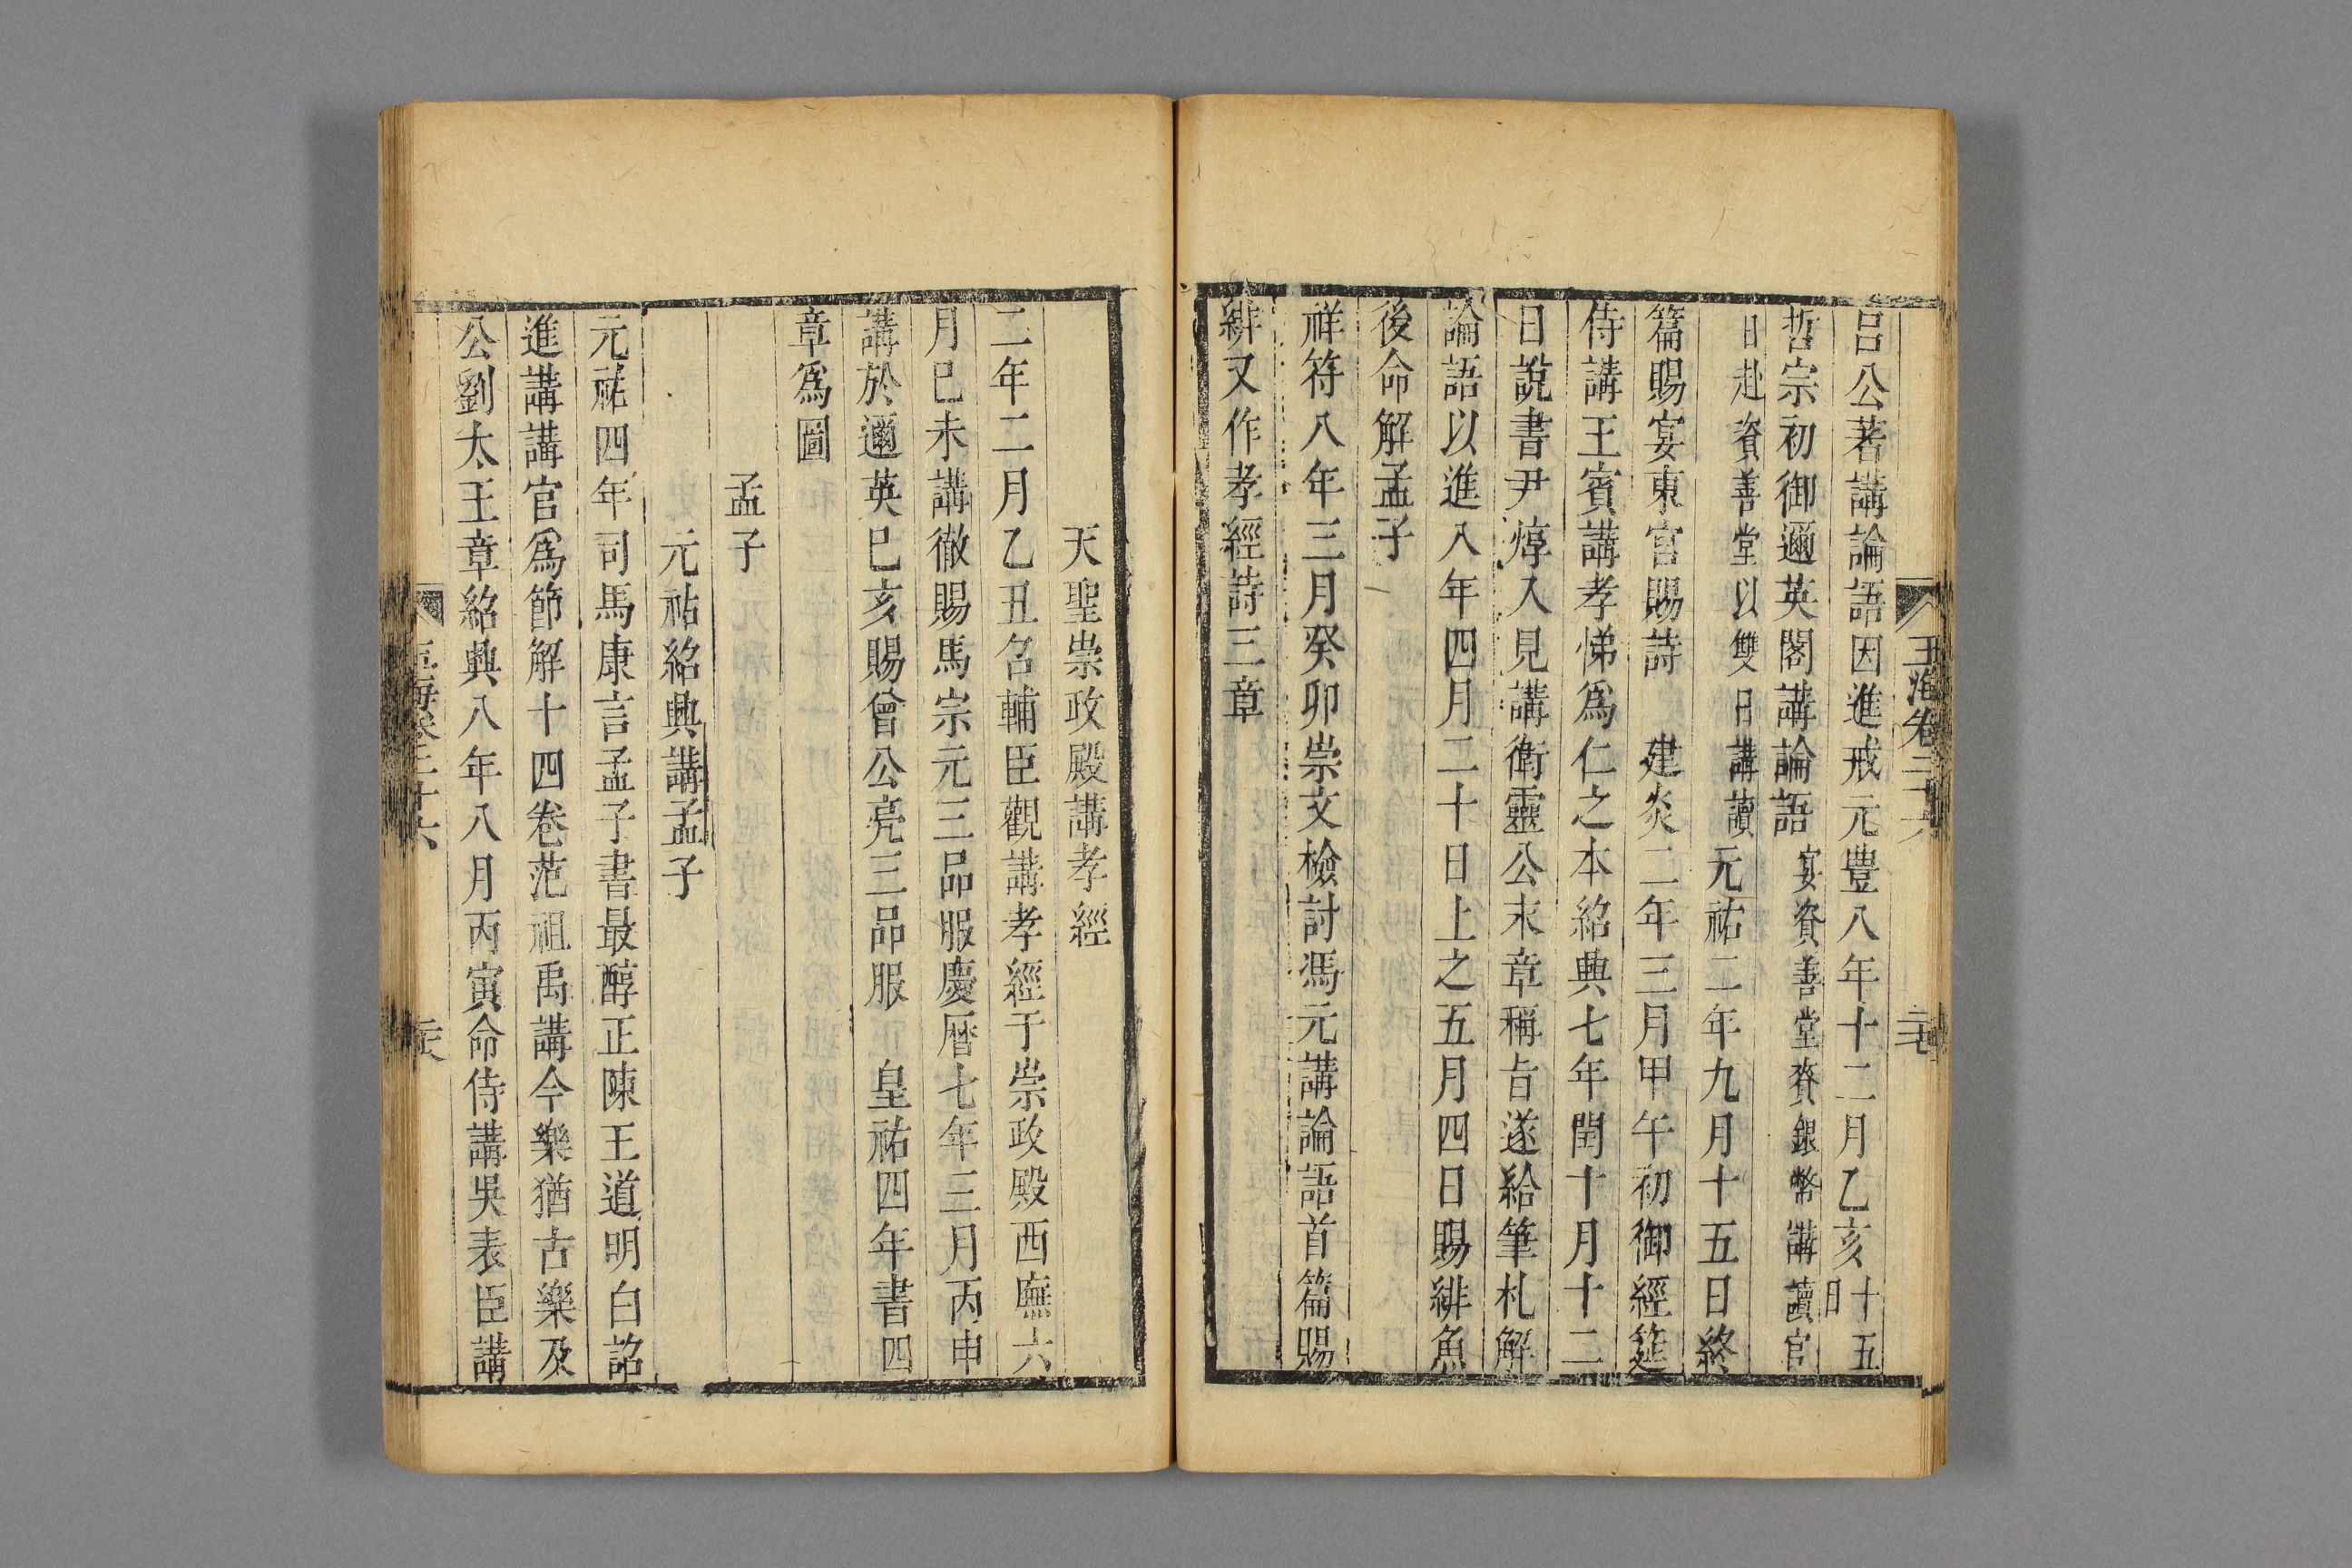 呂公著講論語因進戒元豊八年十二月乙亥十五日
哲宗初御邇英閣講論語宴資善堂賚銀幣講讀官
日赴資善堂以雙日講讀元祐二年九月十五日終
篇賜宴東宫賜詩　建炎二年三月甲午初御經筵
侍講王賓講孝悌爲仁之本紹興七年閏十月十二
日說書尹焞入見講衛靈公末章稱旨遂給筆札解
論語以進八年四月二十日上之五月四日賜緋魚
後命解孟子
祥符八年三月癸卯崇文檢討馮元講論語首篇賜
緋又作孝經詩三章
玉海卷二十六
天聖崇政殿講孝經
二年二月乙丑召輔臣觀講孝經于崇政殿西廡六
月己未講徹賜馬宗元三品服慶曆七年三月丙申
講於邇英己亥賜曾公亮三品服　皇祐四年書四
章爲圖
孟子
元祐紹興講孟子
元祐四年司馬康言孟子書最醇正陳王道明白詔
進講講官爲節解十四卷范祖禹講今樂猶古樂及
公劉太王章紹興八年八月丙寅命侍講吳表臣講
玉海卷二十六